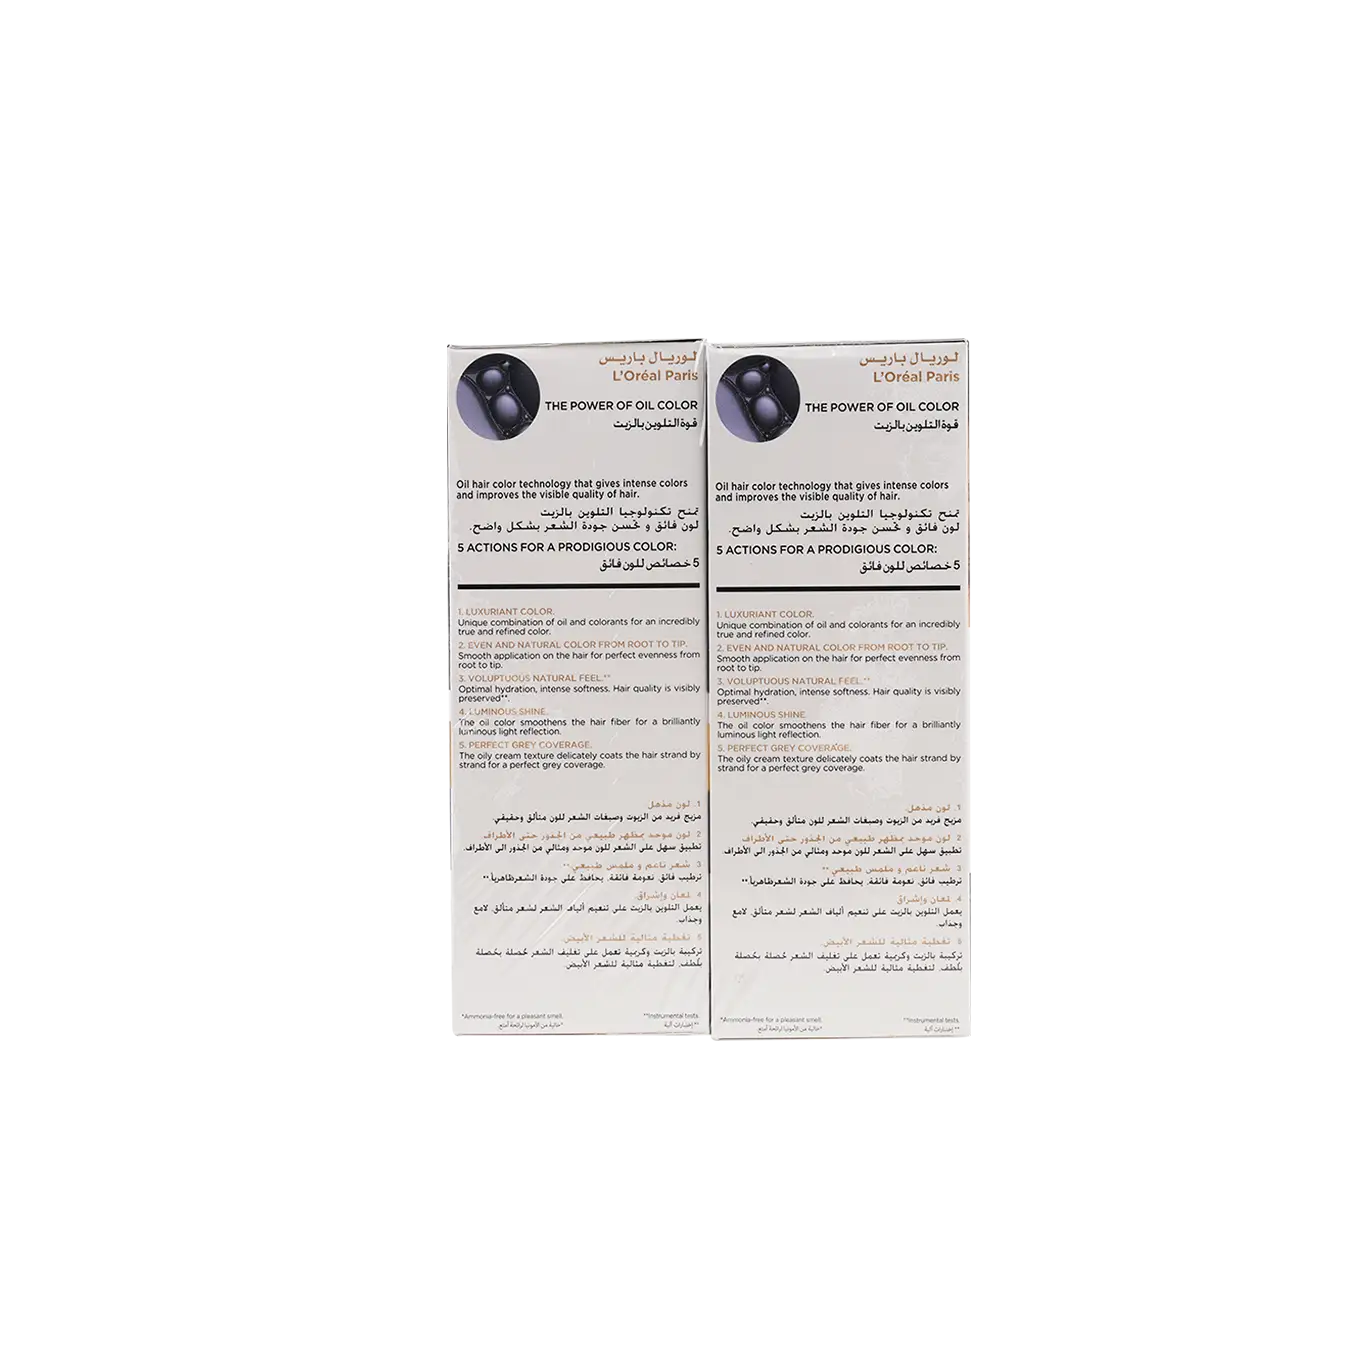 لوريال باريس
L'Oréal Paris
THE POWER OF OIL COLOR
قوة التلوين بالزيت
Oil hair color technology that gives intense colors
and improves the visible quality of hair.
تمنح تكنولوجيا التلوين بالزيت
لون فائق و تحسن جودة الشعر بشكل واضح.
5 ACTIONS FOR A PRODIGIOUS COLOR:
5 خصائص للون فائق
1. LUXURIANT COLOR.
Unique combination of oil and colorants for an incredibly
true and refined color.
2. EVEN AND NATURAL COLOR FROM ROOT TO TIP.
Smooth application on the hair for perfect evenness from
root to tip.
3. VOLUPTUOUS NATURAL FEEL.**
Optimal hydration, intense softness. Hair quality is visibly
preserved**.
4. LUMINOUS SHINE.
The oil color smoothens the hair fiber for a brilliantly
luminous light reflection.
5. PERFECT GREY COVERAGE.
The oily cream texture delicately coats the hair strand by
strand for a perfect grey coverage.
1. لون مذهل.
مزيج فريد من الزيوت وصبغات الشعر للون متألق وحقيقي.
2 لون موحد بمظهر طبيعي من الجذور حتى الأطراف.
تطبيق سهل على الشعر للون موحد ومثالي من الجذور الى الأطراف.
3 شعر ناعم و ملمس طبيعي.**
ترطيب فائق، نعومة فائقة. يحافظ على جودة الشعرظاهرياً**
4 لمعان وإشراق.
يعمل التلوين بالزيت على تنعيم ألياف الشعر لشعر متألق، لامع
وجذاب.
5 تغطية مثالية للشعر الأبيض.
تركيبة بالزيت وكريمية تعمل على تغليف الشعر خُصلة بخُصلة
بلُطف، لتغطية مثالية للشعر الأبيض.
*Ammonia-free for a pleasant smell.
*خالية من الأمونيا لرائحة أمتع.
**Instrumental tests.
** إختبارات آلية
لوريال باريس
L'Oréal Paris
THE POWER OF OIL COLOR
قوة التلوين بالزيت
Oil hair color technology that gives intense colors
and improves the visible quality of hair.
تمنح تكنولوجيا التلوين بالزيت
لون فائق و تحسن جودة الشعر بشكل واضح.
5 ACTIONS FOR A PRODIGIOUS COLOR:
5 خصائص للون فائق
1. LUXURIANT COLOR.
Unique combination of oil and colorants for an incredibly
true and refined color.
2. EVEN AND NATURAL COLOR FROM ROOT TO TIP.
Smooth application on the hair for perfect evenness from
root to tip.
3. VOLUPTUOUS NATURAL FEEL.**
Optimal hydration, intense softness. Hair quality is visibly
preserved**.
4. LUMINOUS SHINE.
The oil color smoothens the hair fiber for a brilliantly
luminous light reflection.
5. PERFECT GREY COVERAGE.
The oily cream texture delicately coats the hair strand by
strand for a perfect grey coverage.
1. لون مذهل.
مزيج فريد من الزيوت وصبغات الشعر للون متألق وحقيقي.
2 لون موحد بمظهر طبيعي من الجذور حتى الأطراف.
تطبيق سهل على الشعر للون موحد ومثالي من الجذور الى الأطراف.
3 شعر ناعم و ملمس طبيعي.**
ترطيب فائق، نعومة فائقة. يحافظ على جودة الشعرظاهرياً**
4. لمعان وإشراق.
يعمل التلوين بالزيت على تنعيم ألياف الشعر لشعر متألق، لامع
وجذاب.
5 تغطية مثالية للشعر الأبيض.
تركيبة بالزيت وكريمية تعمل على تغليف الشعر خُصلة بخُصلة
بلُطف، لتغطية مثالية للشعر الأبيض.
*Ammonia-free for a pleasant smell.
*خالية من الأمونيا لرائحة أمتع.
**Instrumental tests.
** إختبارات آلية